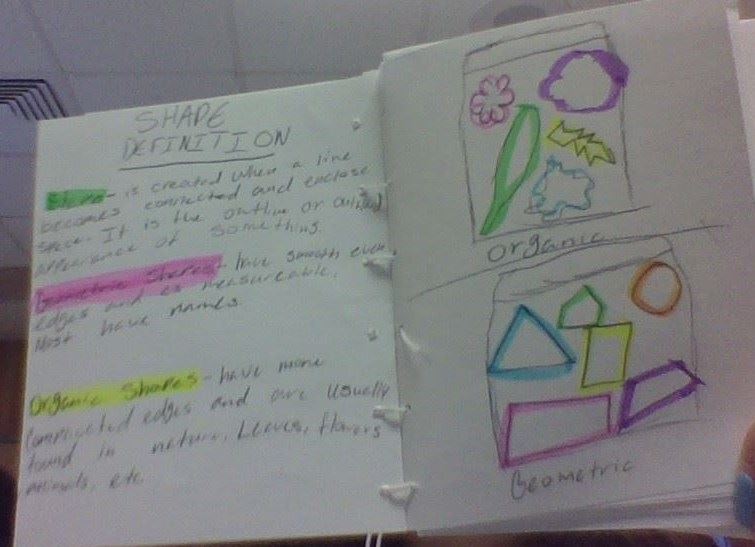 SHAPE
DEFINITION
Shape - is created when a line
becomes connected and enclose
space. It is the outline or outward
appearance of something.
Geometric Shapes - have smooth even
edges and measureable.
Most have names.
Organic Shapes - have more
complicated edges and are usually
found in nature, Leaves, flowers
animals, etc
Organic
Geometric